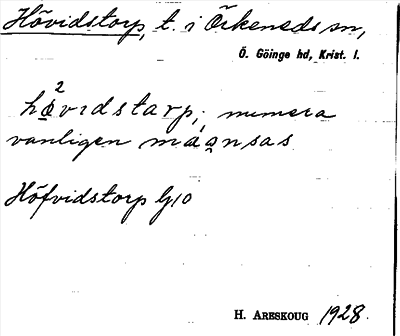 Hövidstorp, t. i Örkeneds sn,
Ö. Göinge hd, Krist. l.
hø²vıdstarp; numera
vanligen måạnsas
Höfvidstorp G10
H. ARESKOUG 1928.